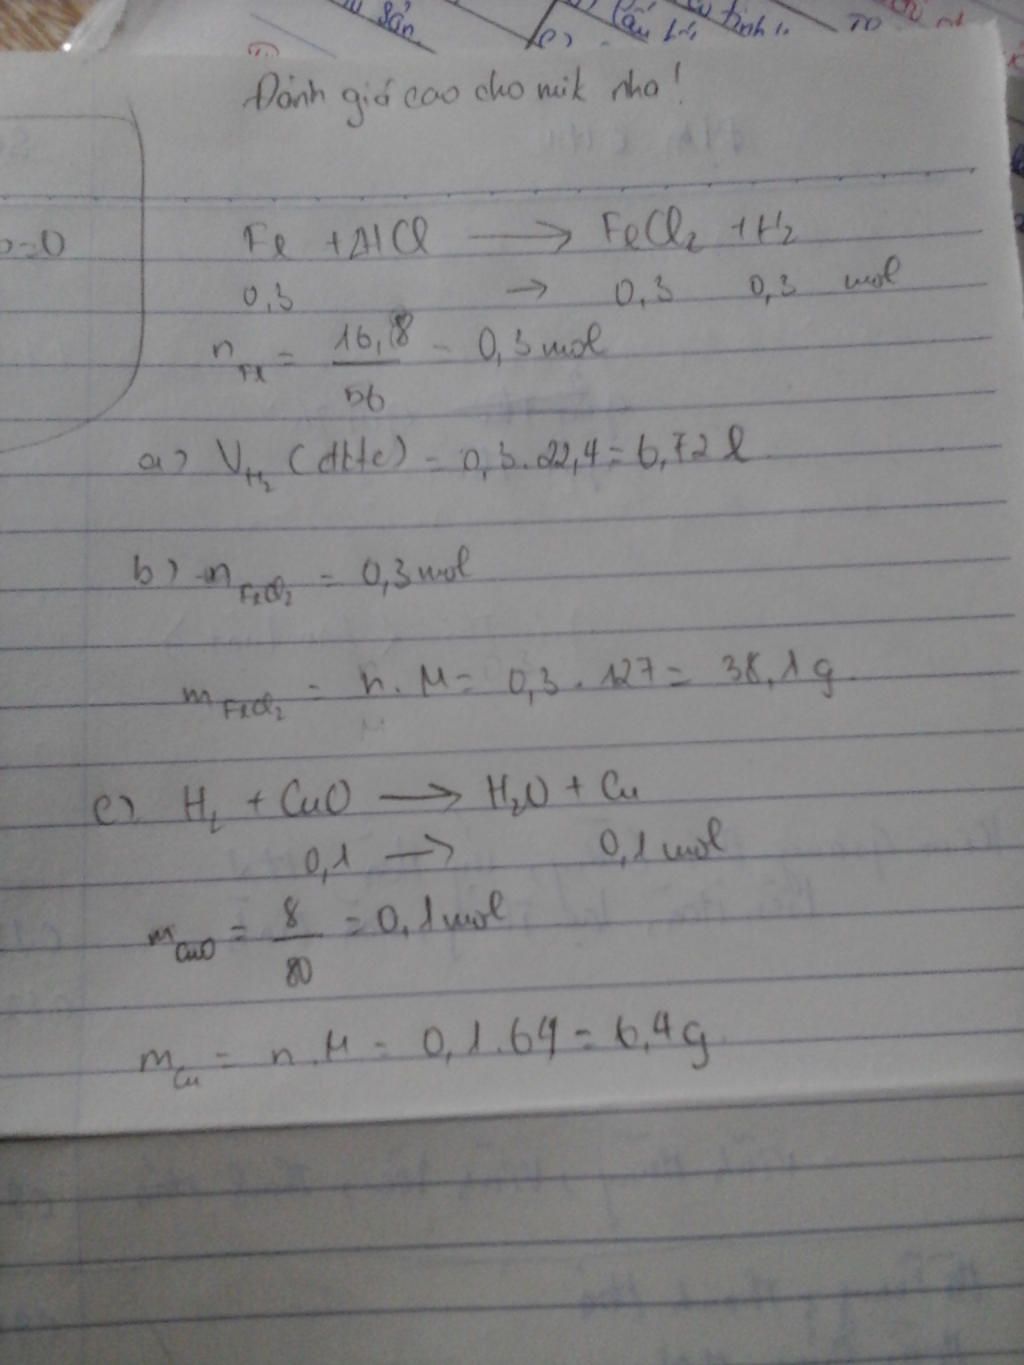 sản
Đánh giá cao cho mik nha!
=0
Fe + 2HCl → FeCl₂ + H₂
0,3 → 0,3 0,3 mol
n_Fe = 16,8/56 = 0,3 mol
a) V_H₂ (đktc) = 0,3.22,4 = 6,72 l
b) n_FeCl₂ = 0,3 mol
m_FeCl₂ = n.M = 0,3.127 = 38,1 g
c) H₂ + CuO → H₂O + Cu
0,1 → 0,1 mol
m_CuO = 8/80 = 0,1 mol
m_Cu = n.M = 0,1.64 = 6,4g